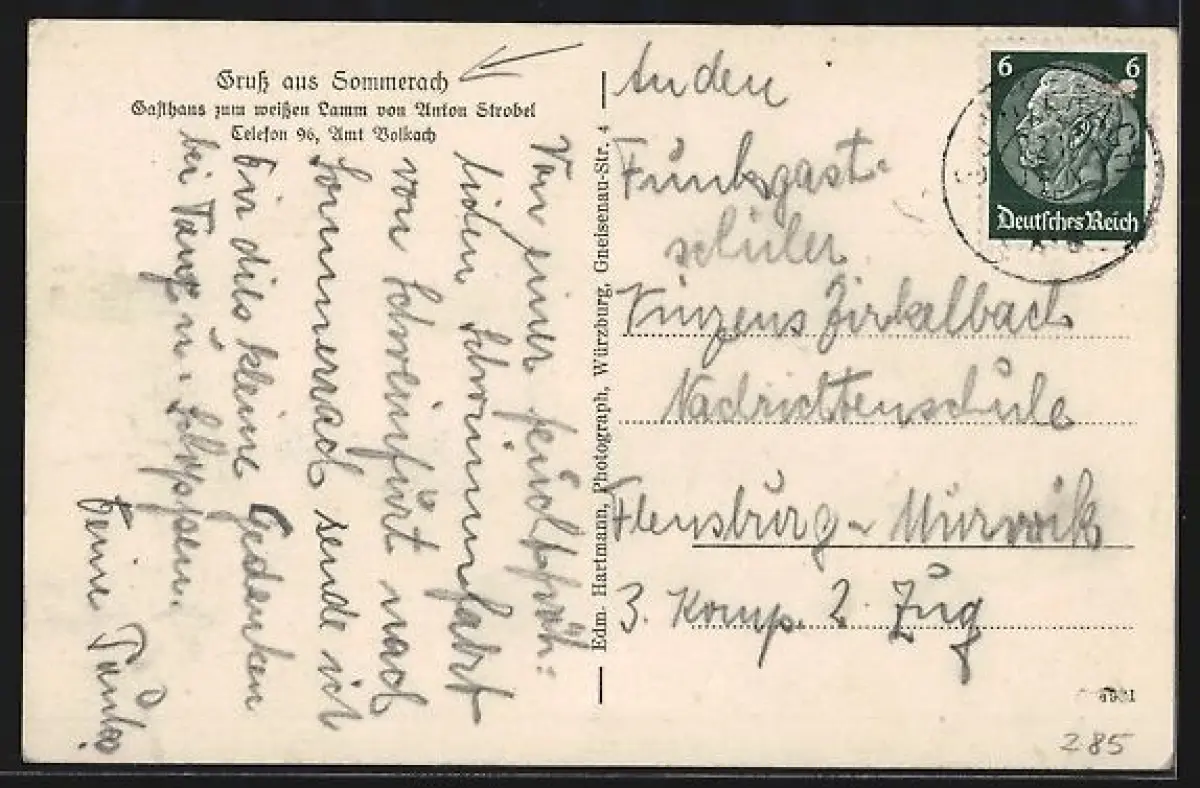 Gruß aus Sommerach
Gasthaus zum weißen Lamm von Anton Strobel
Telefon 96, Amt Volkach
Von einer feuchtfröh-
lichen Schwimmfahrt
von Schweinfurt nach
Sommerach sende ich
Dir dies kleine Gedenken
bei Tanz u. Schoppen.
Deine
Edm. Hartmann, Photograph, Würzburg, Gneisenau-Str. 4
An den
Funkgast-
schüler
Vinzens Zirkelbach
Nachrichtenschule
Flensburg-Mürwik
3. Komp. 2. Zug
6 6
Deutsches Reich
285